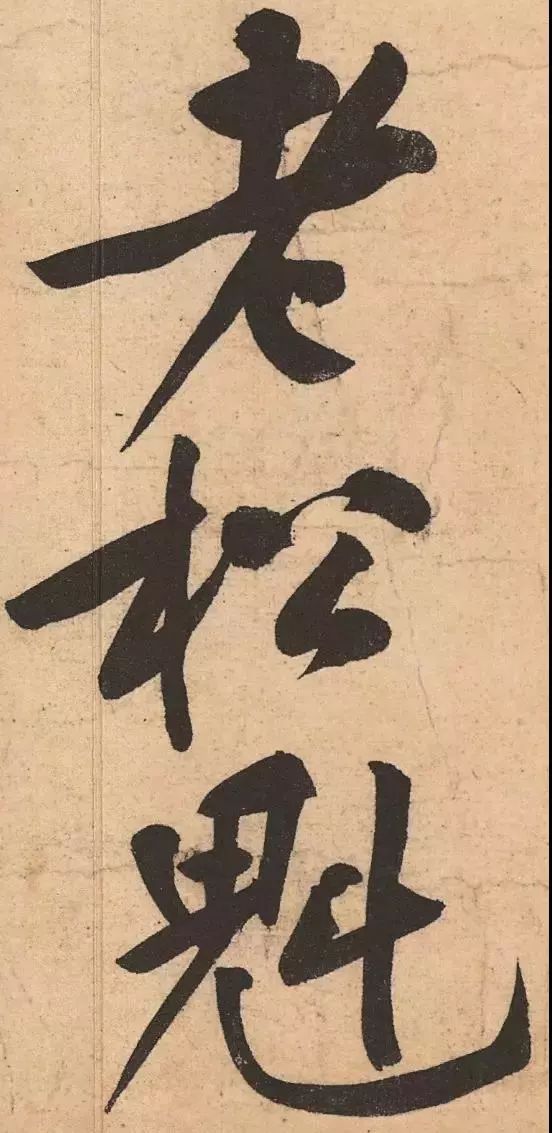 老松魁